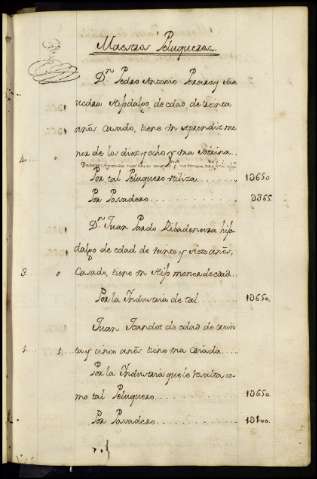 Maestros Peluqueros.
Dn. Pedro Antonio
Hijodalgo, de edad de treinta
años Casado, tiene un Aprendiz me
nor de los diez y ocho y una Sobrina..
4.
Por tal Peluquero utiliza........ 1D650.
Por Posadero........ D365.
Dn. Juan Pardo Ribadeneira hijo
dalgo de edad de treinta y siete años,
3. Casado, tiene un Hijo menor de edad..
Por la Industria de tal..... 1D650.
Juan de edad de trein
1. 1. ta y cinco años tiene una Criada....
Por la Industria que le resulta co
mo tal Peluquero........ 1D650.
Por Posadero........ 1D100.